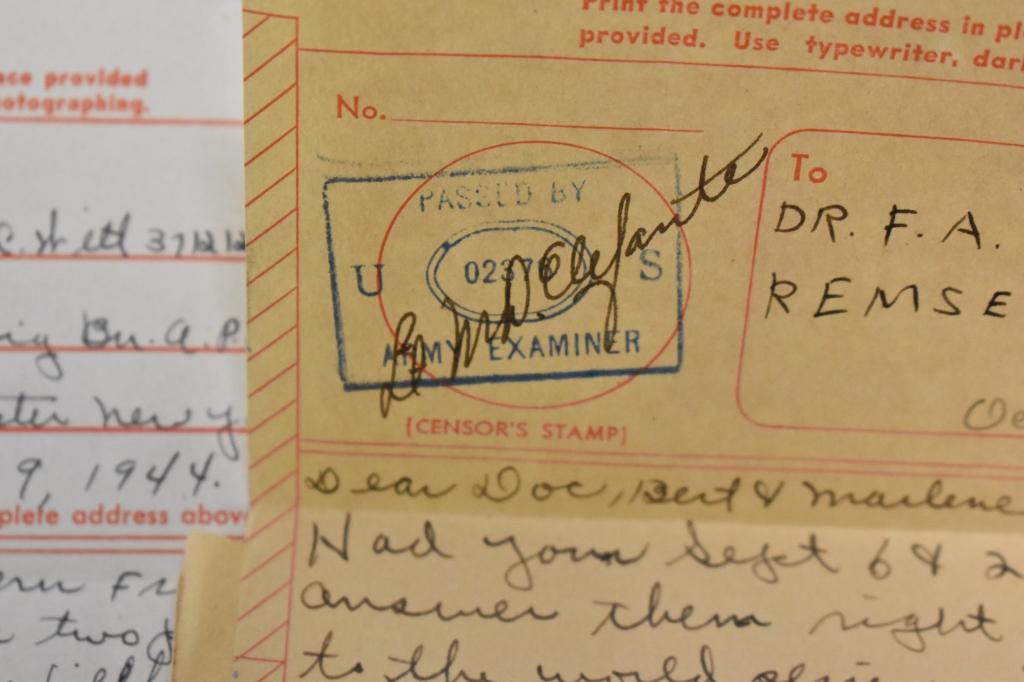 ace provided
otographing.
3712
Bn. A.P.
New Y
9, 1944.
plete address abov
two
Print the complete address in pl
provided. Use typewriter, dark
No.
PASSED BY
U S
ARMY EXAMINER
(CENSOR'S STAMP)
To
DR. F. A.
REMSE
Dear Doc, Bert & Marlene
Had your Sept 6 & 2
answer them right
to the world